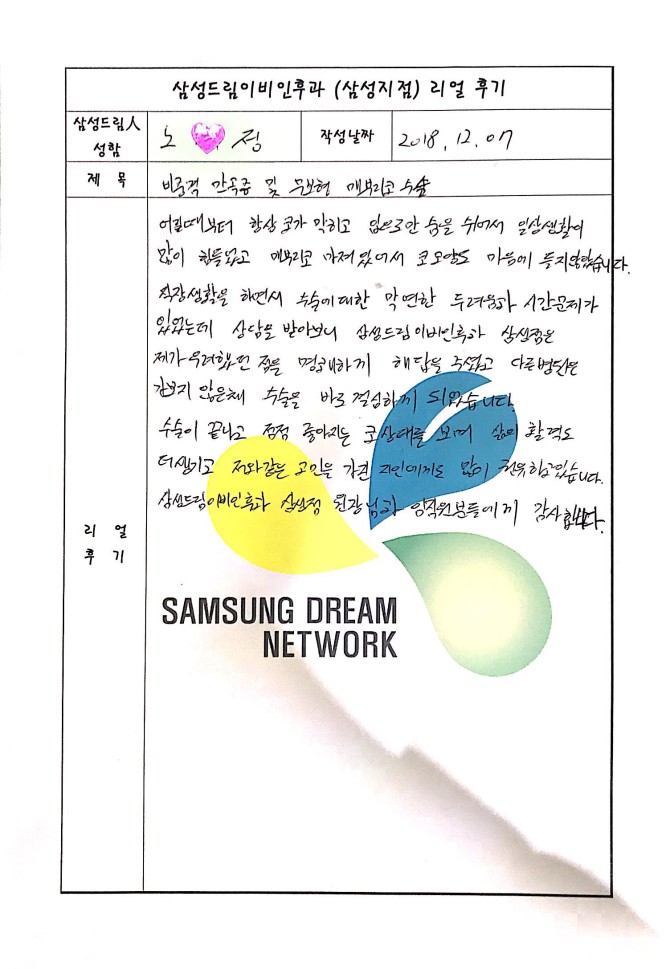 삼성드림이비인후과 (삼성지점) 리얼 후기
삼성드림人 성함
노 정
작성날짜
2018. 12. 07
제 목
비중격 만곡증 및 무보형 매부리코 수술
리 얼 후 기
어릴때부터 항상 코가 막히고 입으로만 숨을 쉬어서 일상생활이
많이 힘들었고 매부리코 마져있어서 코모양도 마음에 들지않았습니다.
직장생활을 하면서 수술에대한 막연한 두려움과 시간문제가
있었는데 상담을 받아보니 삼성드림이비인후과 삼성점은
제가 우려했던 점을 명쾌하게 해답을 주셨고 다른병원은
가보지 않은채 수술을 바로 결심하게 되었습니다.
수술이 끝나고 점점 좋아지는 코상태를 보며 삶의 활력도
더생기고 저와같은 고민을 가진 지인에게도 많이 권유하고있습니다.
삼성드림이비인후과 삼성점 원장님과 임직원분들에게 감사합니다.
SAMSUNG DREAM
NETWORK